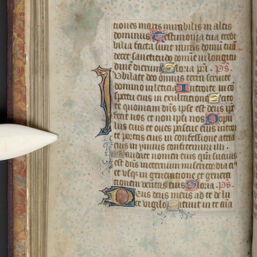 tiones maris mirabilis in altis
dominus Testimonia tua credi
bilia facta sunt nimis domum tuam
decet sanctitudo domine in longitu
dinem dierum Gloria pri. Ps.
Iubilate deo omnis terra servite
domino in leticia Introite in co
spectu eius in exultatione Scito
te quoniam dns ipse est deus ipse
fecit nos et non ipsi nos
lus eius et oves pascue eius introi
te portas eius in confessione atria
eius in ymnis confitemini illi
Laudate nomen eius qm suavis
est dns in eternum misericordia ei
et usque in generatione et generati
onem veritas eius Gloria. Ps.
Deus deus meus ad te de lu
ce vigilo Sitivit in te aia